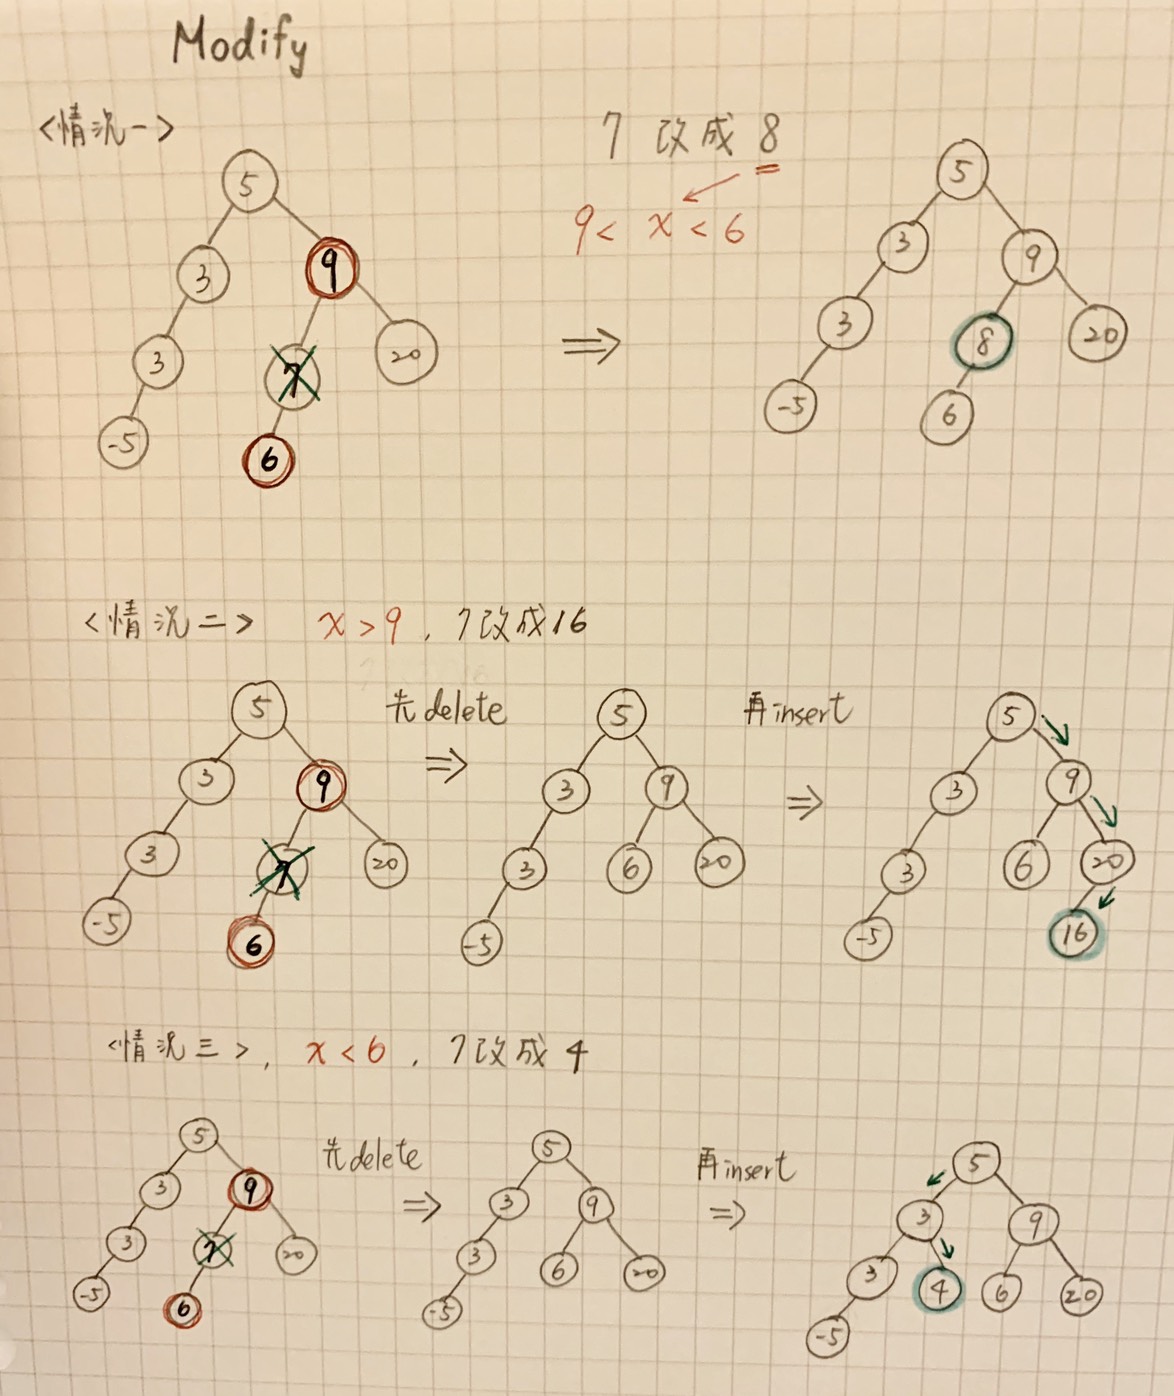 Modify
<情況一>
7 改成 8
9 < x < 6
5
3 9
3 7 20
-5 6
⇒
5
3 9
3 8 20
-5 6
<情況二> x > 9 , 7改成16
5
3 9
3 7 20
-5 6
先 delete
⇒
5
3 9
3 6 20
-5
再 insert
⇒
5
3 9
3 6 20
-5 16
<情況三> , x < 6 , 7改成 4
5
3 9
3 7 20
-5 6
先 delete
⇒
5
3 9
3 6 20
-5
再 insert
⇒
5
3 9
3 4 6 20
-5